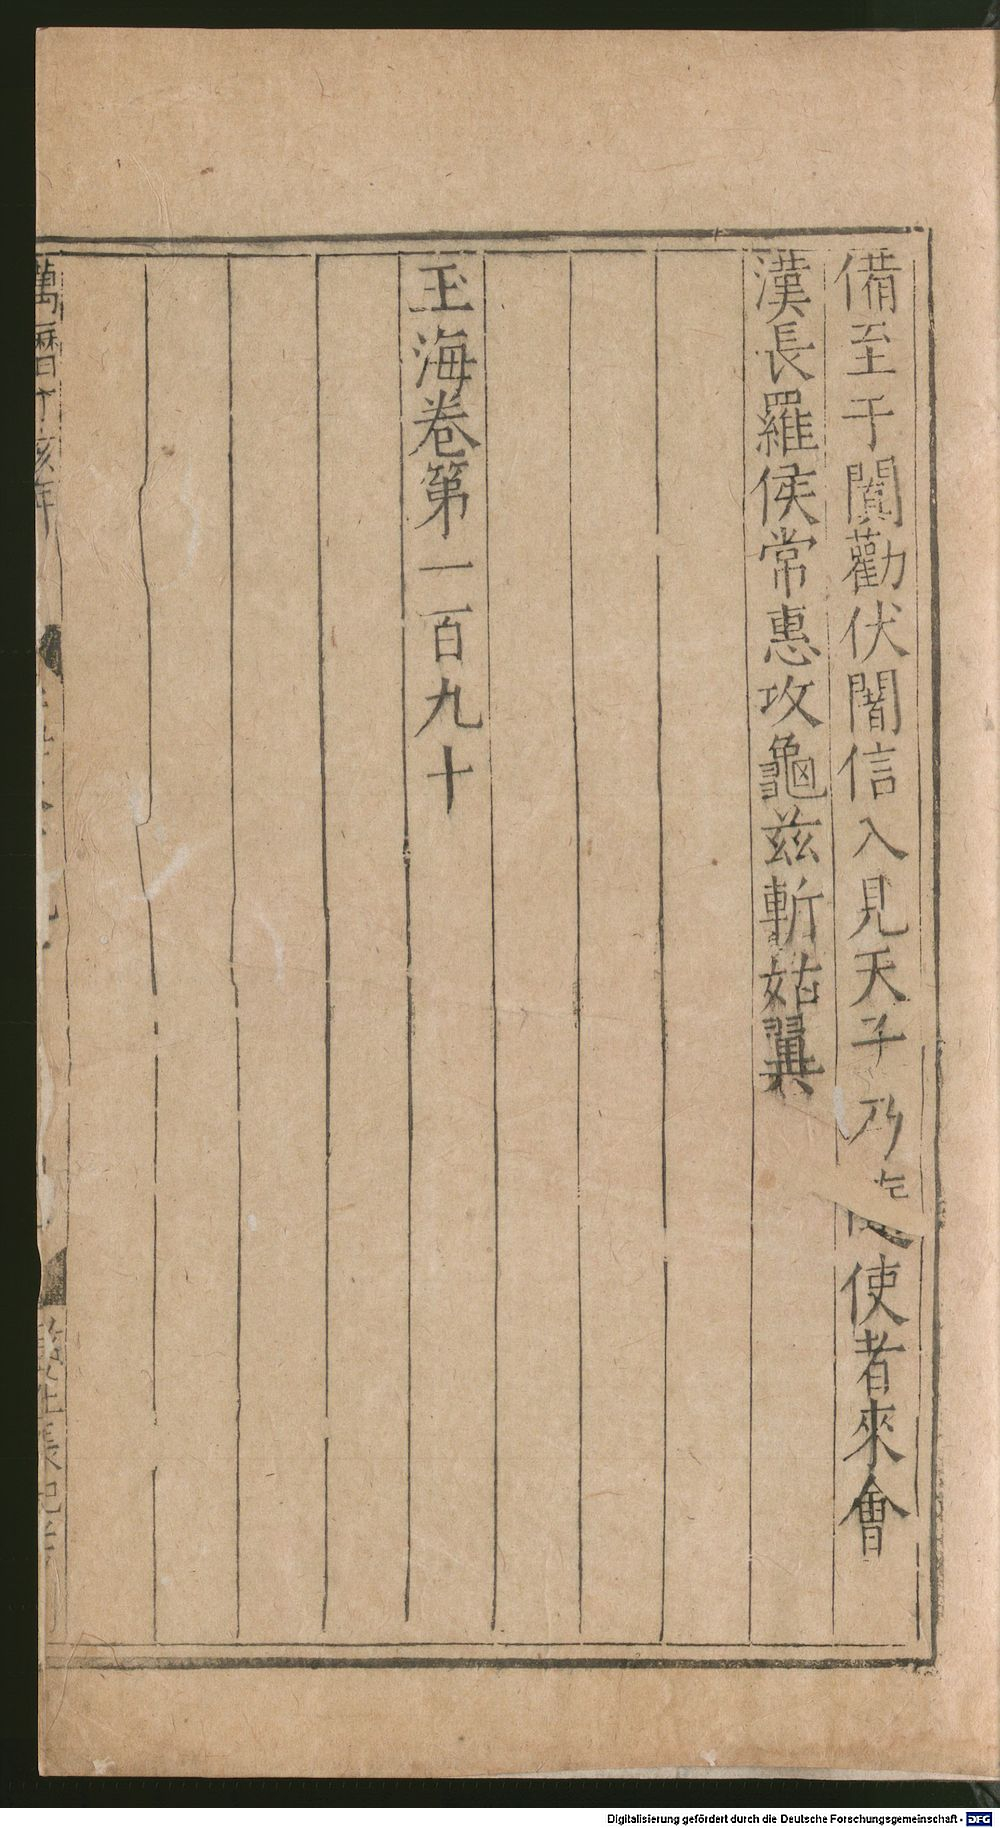 備至于闐勸伏闍信入見天子乃 使者來會
漢長羅侯常惠攻龜茲斬姑翼
玉海卷第一百九十
萬曆丁亥年
Digitalisierung gefördert durch die Deutsche Forschungsgemeinschaft - DFG